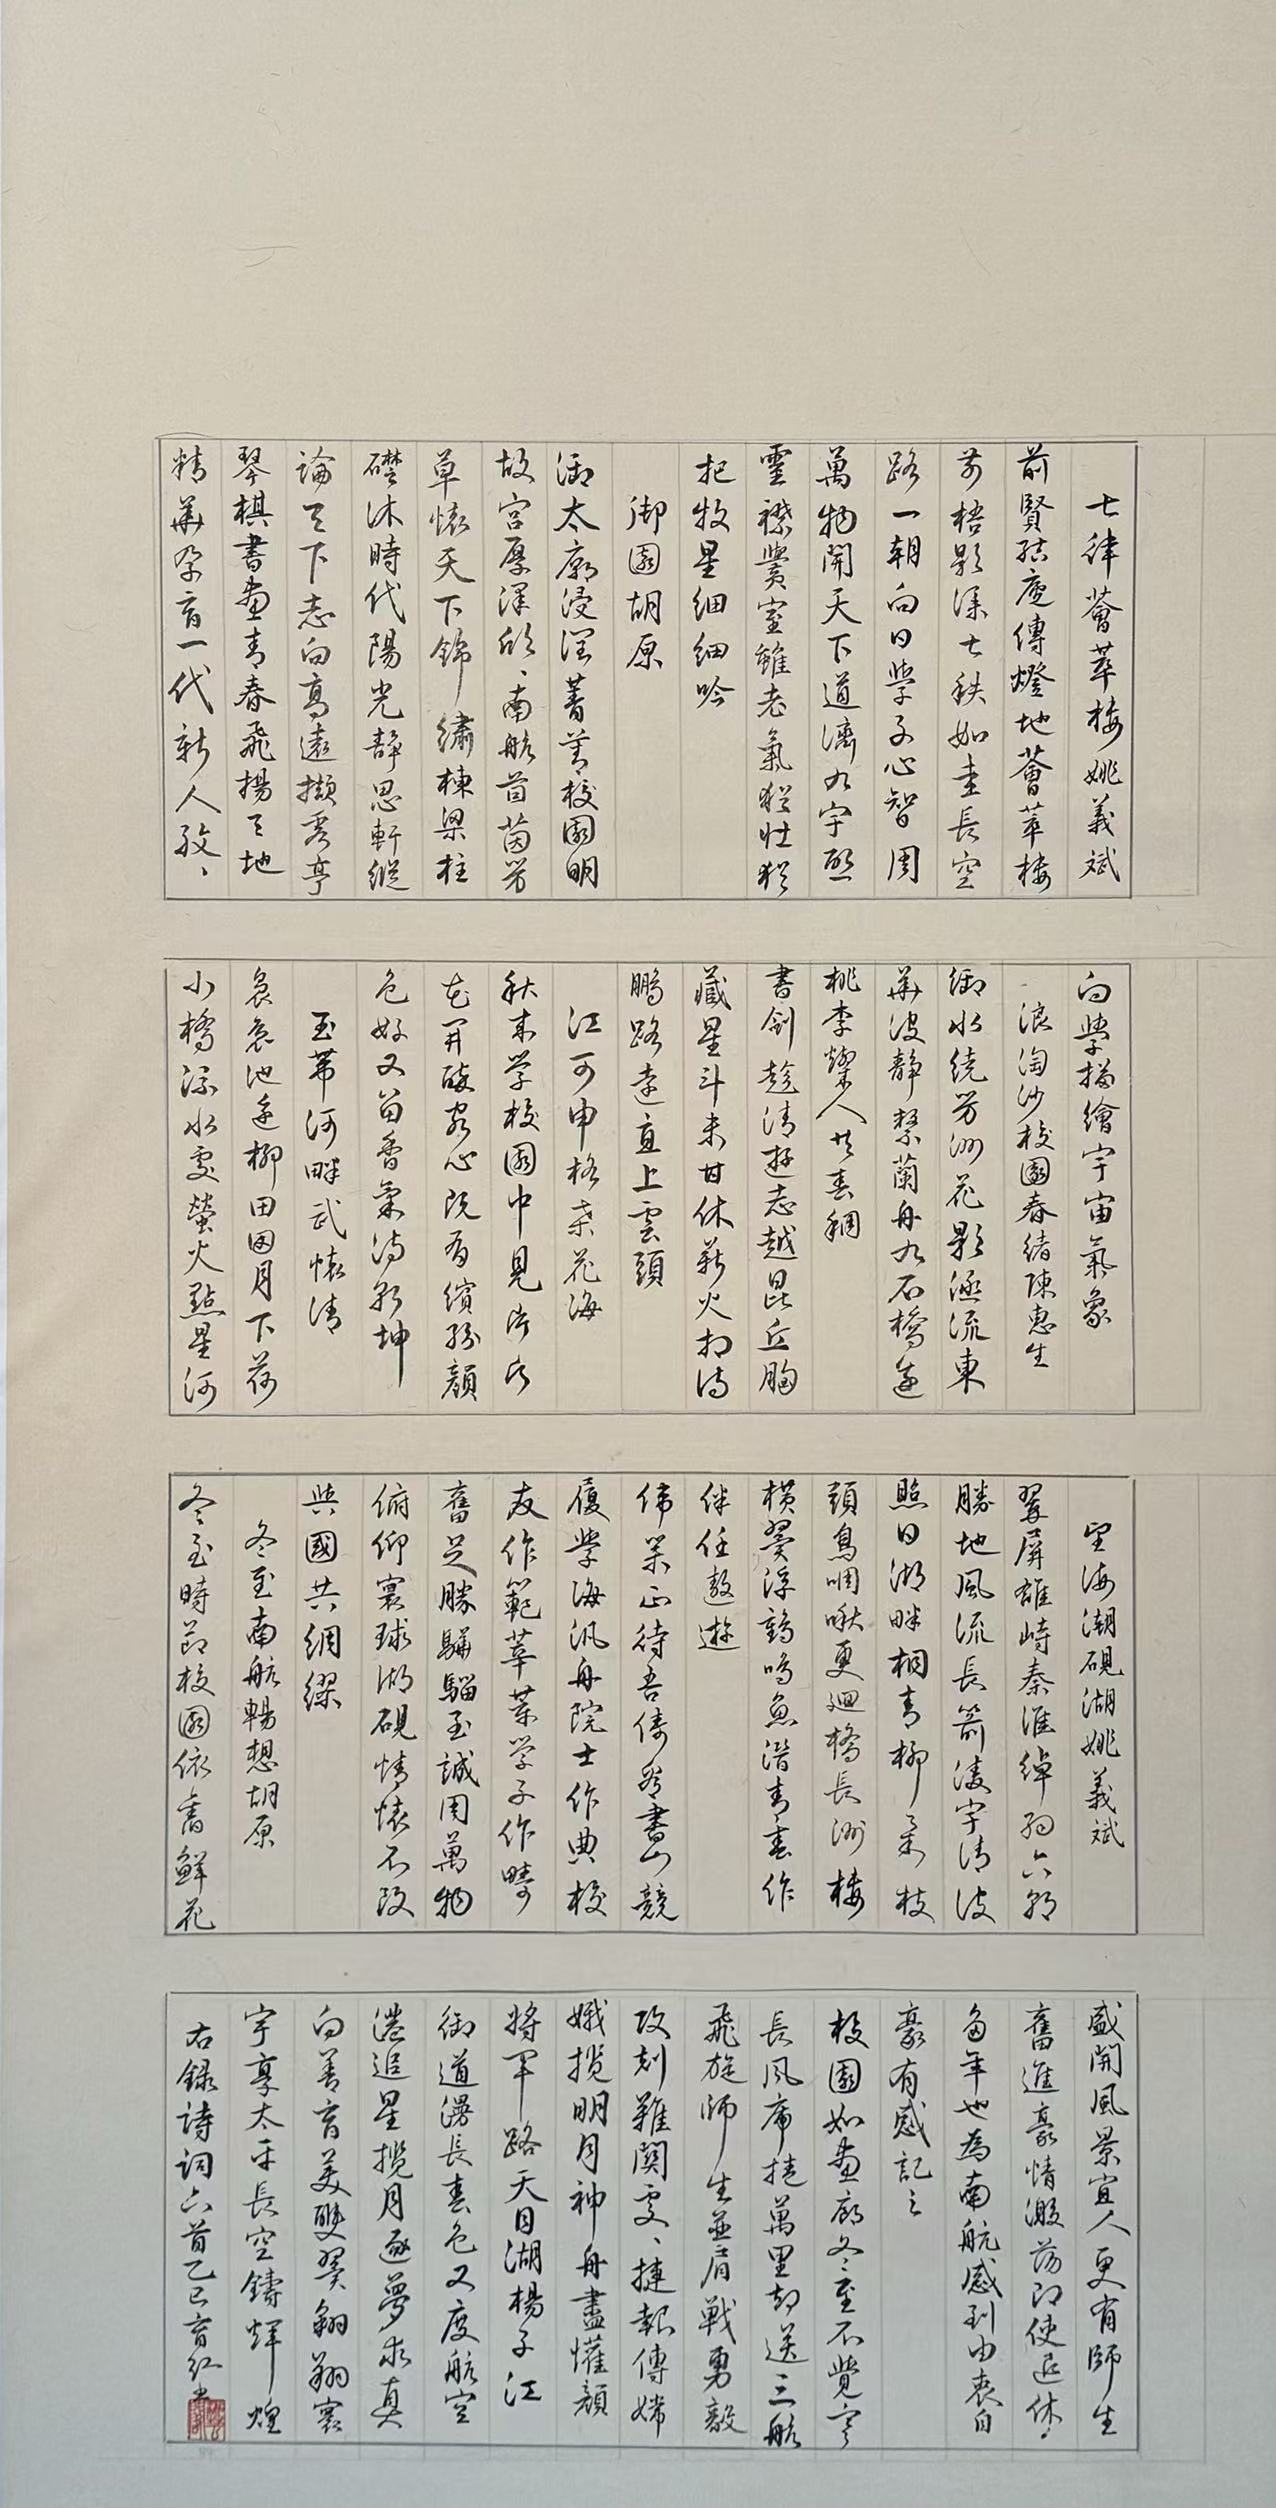 七律薈萃樓姚義斌
前賢結廬傳燈地薈萃樓
前梧影深七秩如畫長空
路一朝向日學子心智周
萬物開天下道濟九宇啟
靈襟黌室雖老氣猶壯猶
把牧星細細吟
御園胡原
湖太廟浸潤菁菁校園明
故宮厚澤欣欣南航苜茵芳
草懷天下錦繡棟梁柱
礎沐時代陽光靜思軒縱
論天下志向高遠擷秀亭
琴棋書畫青春飛揚天地
精華孕育一代新人孜孜
向學描繪宇宙氣象
浪淘沙校園春緒陳惠生
御水繞芳洲花影逐流東
華波靜繫蘭舟九石橋邊
桃李燦人共春稠
書劍趁清遊志越昆丘胸
藏星斗未甘休薪火相傳
鵬路遠直上雲頭
江可申格桑花海
秋來學校園中見片片
花開醉客心既有繽紛顏
色好又留香氣滿乾坤
玉帶河畔武懷清
裊裊池邊柳田田月下荷
小橋流水處螢火點星河
望海潮硯湖姚義斌
翠屏雄峙秦淮綽約六朝
勝地風流長箭凌宇清波
照日湖畔桐青柳柔枝
頭鳥啁啾更迴橋長洲樓
橫翼浮鶴鳴魚潛青春作
伴任遨遊
偉業正待吾儔看書山競
履學海汎舟院士作典校
友作範莘莘學子作疇
奮足勝驊騮至誠周萬物
俯仰寰球湖硯情懷不改
與國共綢繆
冬至南航暢想胡原
冬至時節校園依舊鮮花
盛開風景宜人更有師生
奮進豪情激蕩即使退休
多年也為南航感到由衷自
豪有感記之
校園如畫廊冬至不覺寒
長風席捲萬里却送三航
飛旋師生並肩戰勇毅
攻剋難關處處捷報傳嫦
娥攬明月神舟盡懽顏
將軍路天目湖楊子江
御道漫長春色又度航空
港追星攬月逐夢求真
向善育美雙翼翱翔寰
宇享太平長空鑄輝煌
右錄詩詞六首乙巳育紅書